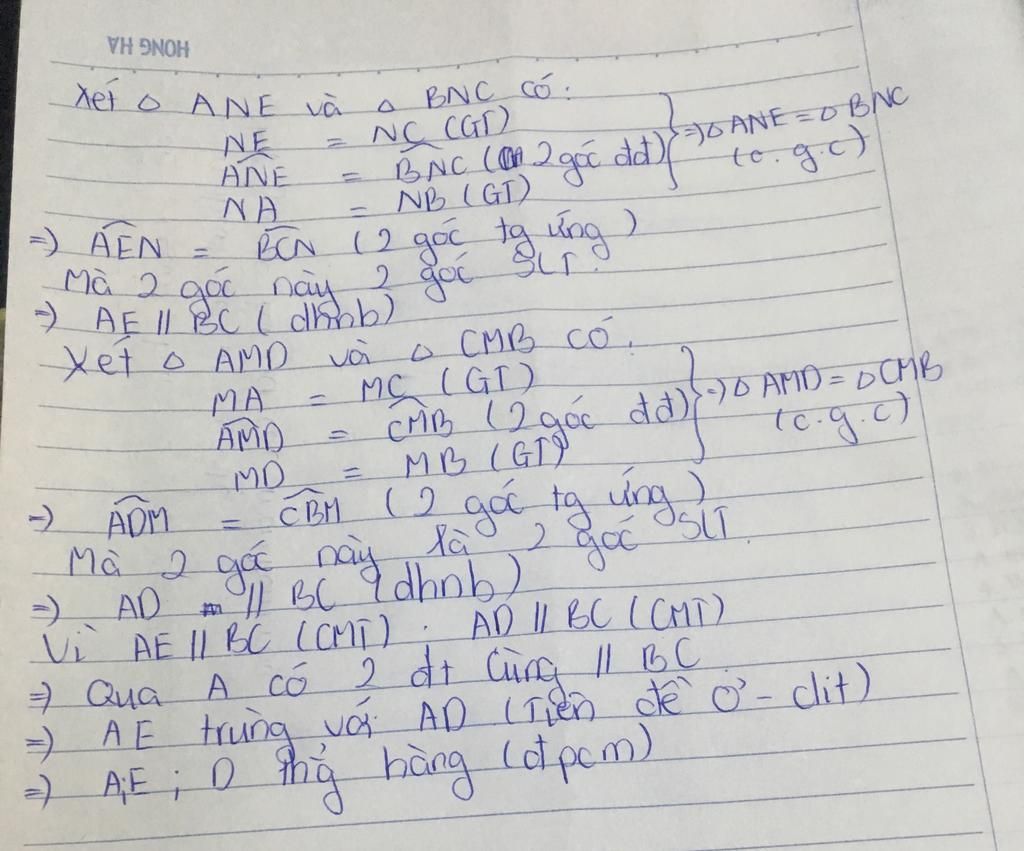 HONG HA
Xét △ ANE và △ BNC có:
NE = NC (GT)
ANE = BNC (2 góc đđ) } => △ ANE = △ BNC
NA = NB (GT) (c.g.c)
=> AEN = BCN (2 góc tg ứng)
Mà 2 góc này 2 góc SLT.
=> AE // BC (dhnb)
Xét △ AMD và △ CMB có.
MA = MC (GT)
AMD = CMB (2 góc đđ) } => △ AMD = △ CMB
MD = MB (GT) (c.g.c)
=> ADM = CBM (2 góc tg ứng)
Mà 2 góc này là 2 góc SLT.
=> AD // BC (dhnb)
Vì AE // BC (CMT). AD // BC (CMT)
=> Qua A có 2 đt cùng // BC
=> AE trùng với AD (Tiên đề Ơ-clit)
=> A;E; D thẳg hàng (đpcm)